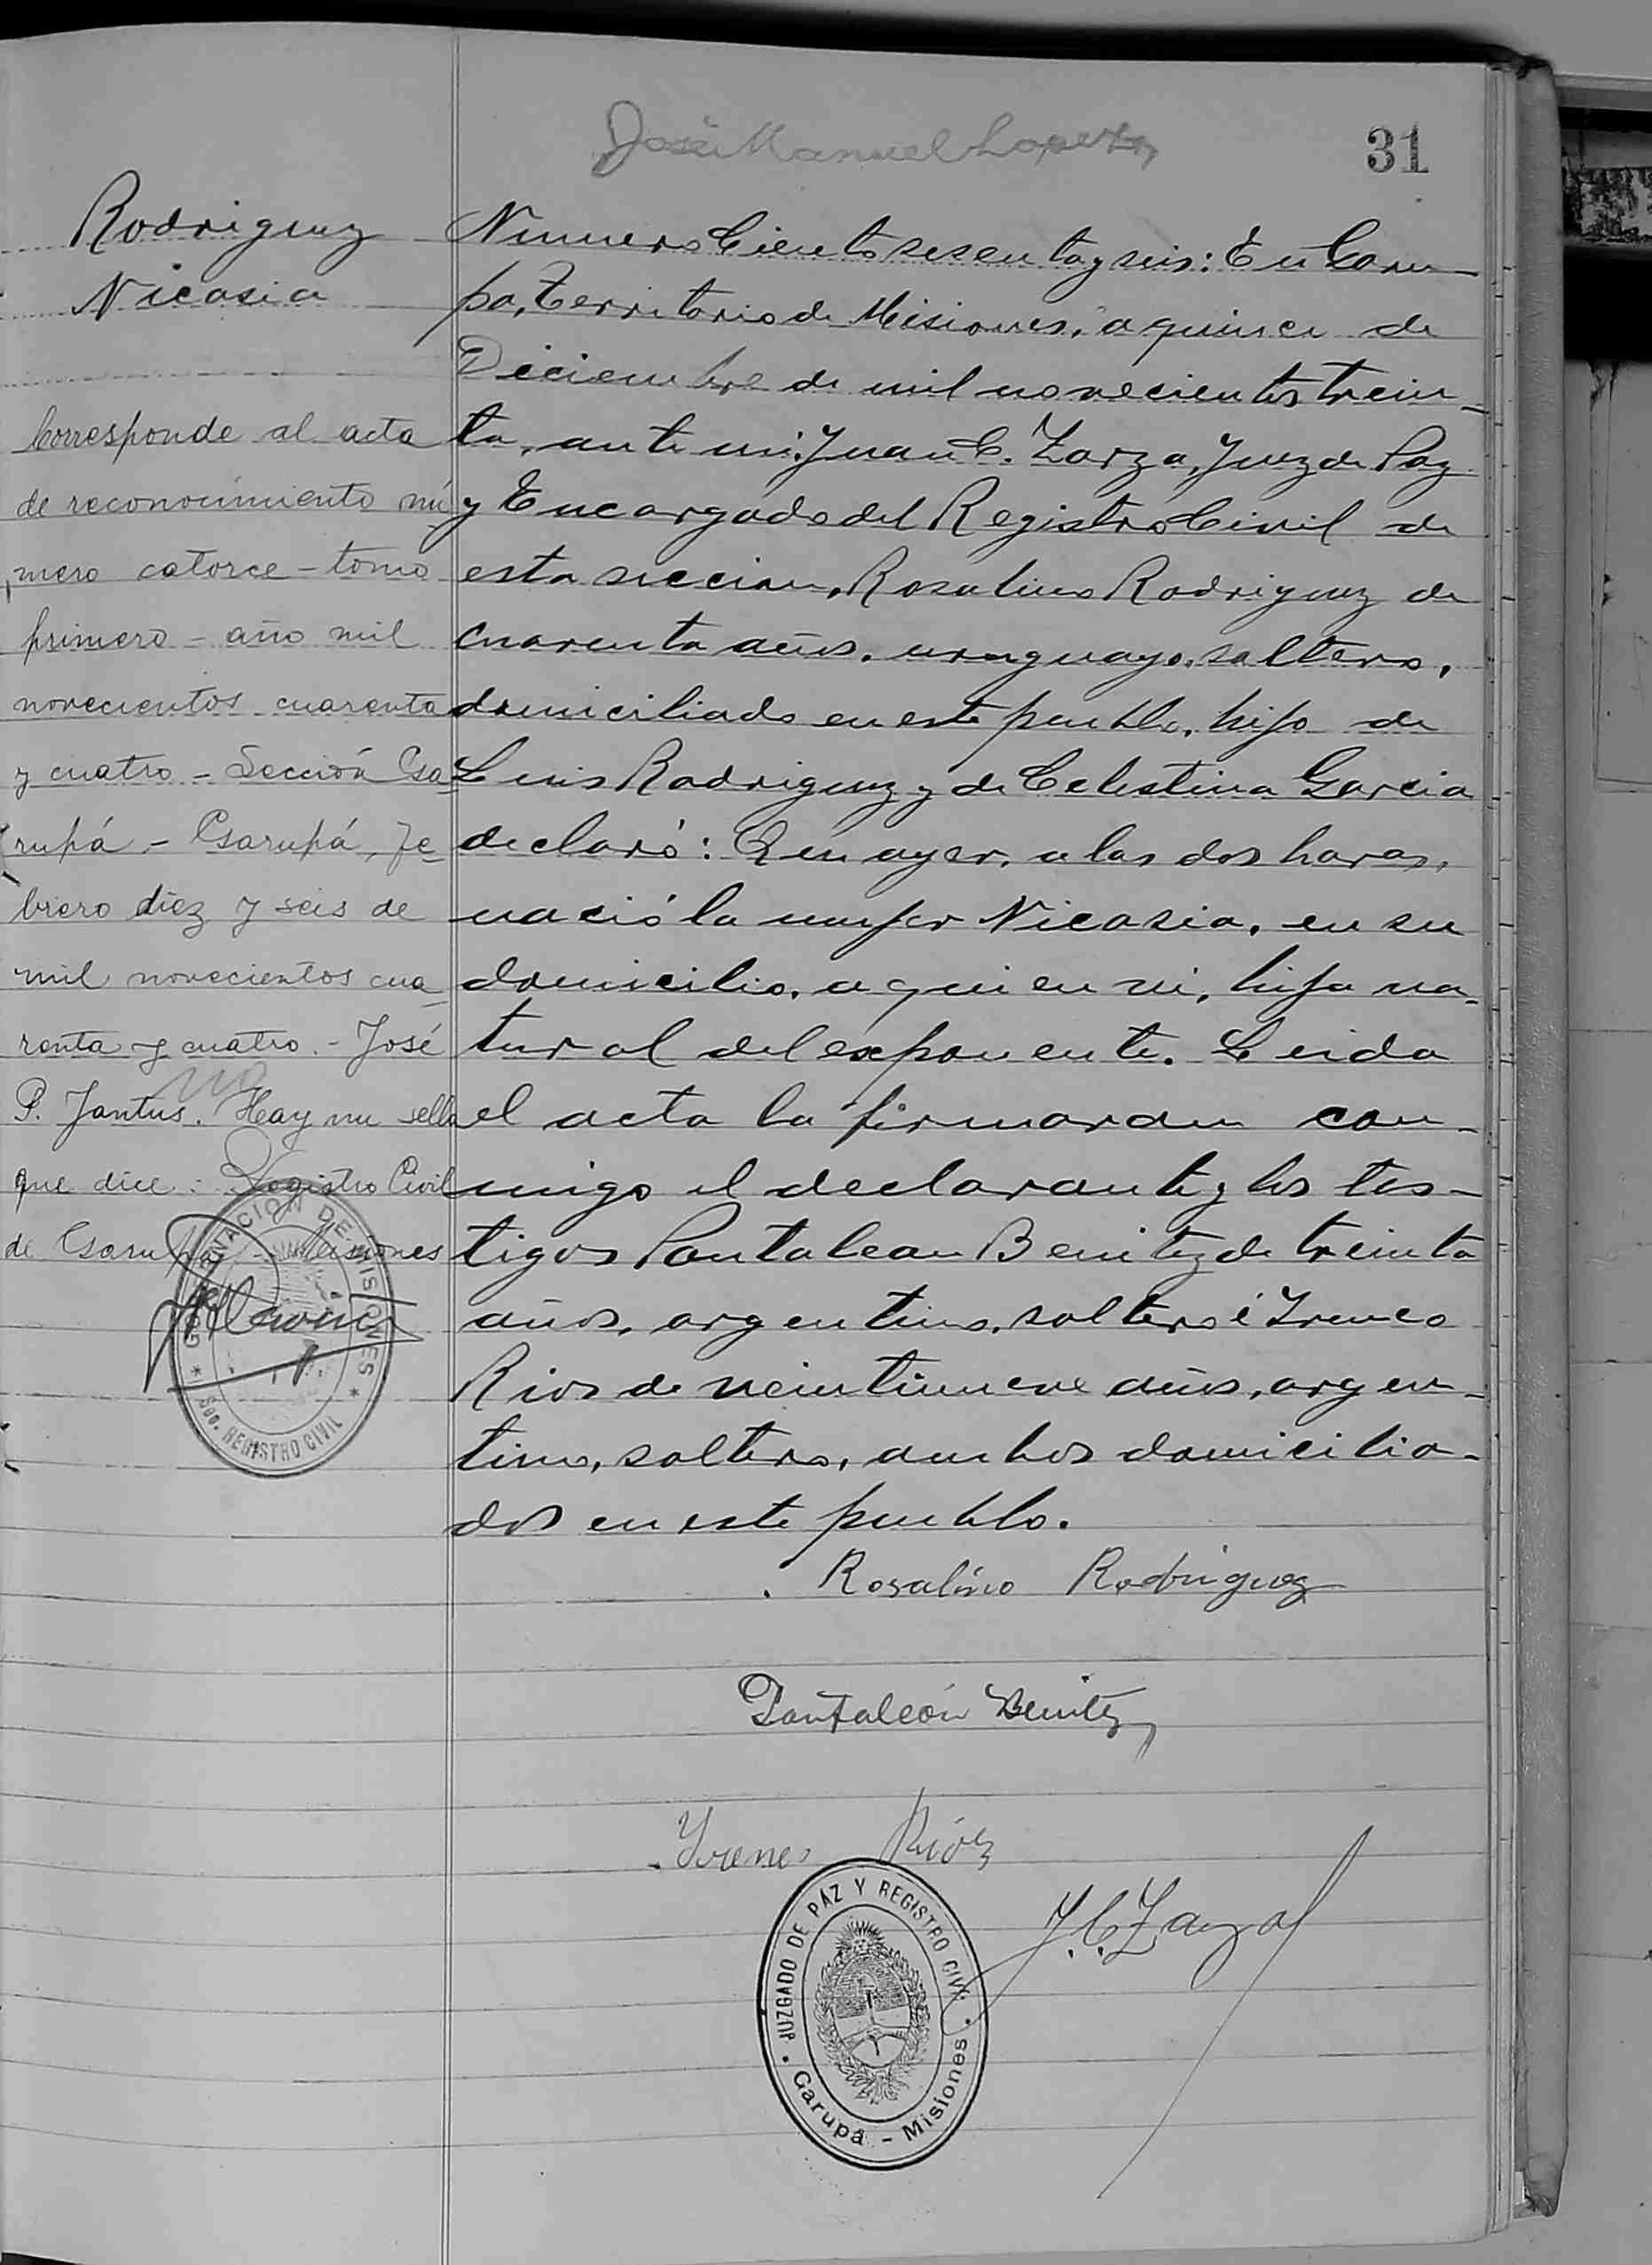 José Manuel Lopez
31
Rodriguez
Nicasia
Numero Ciento sesenta y seis: En Garu-
pa, Territorio de Misiones, a quince de
Diciembre de mil novecientos trein-
ta, ante mi: Juan C. Zarza, Juez de Paz
y Encargado del Registro Civil de
esta seccion, Rosalino Rodriguez de
cuarenta años, uruguayo, soltero,
domiciliado en este pueblo, hijo de
Luis Rodriguez y de Celestina Garcia
declaró: Que ayer, a las dos horas,
nació la mujer Nicasia, en su
domicilio, a quien vi, hija na-
tural del exponente. Leida
el acta la firmaron con-
migo el declarante y los tes-
tigos Pantaleon Benitez de treinta
años, argentino, soltero é Ireneo
Rios de veintinueve años, argen-
tino, soltero, ambos domicilia-
dos en este pueblo.
Corresponde al acta
de reconocimiento nú
mero catorce - tomo
primero - año mil
novecientos cuarenta
y cuatro - Sección Ga
rupá - Garupá, Fe
brero diez y seis de
mil novecientos cua
renta y cuatro. - José
P. Jantus. Hay un sello
que dice: Registro Civil
de Garupá - Misiones
GOBERNACION DE MISIONES
Sec. REGISTRO CIVIL
Rosalino Rodriguez
Pantaleón Benitez
Yreneo Ríos
J. C. Zarza
JUZGADO DE PAZ Y REGISTRO CIVIL
Garupá - Misiones